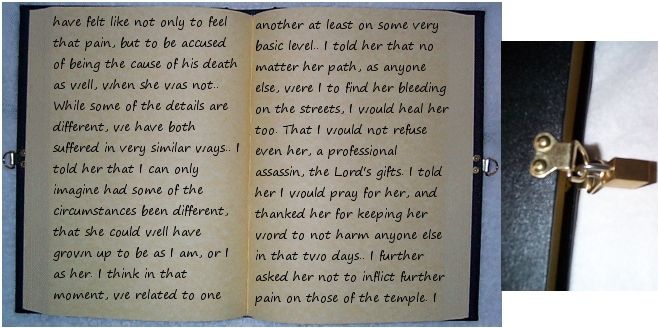 have felt like not only to feel
that pain, but to be accused
of being the cause of his death
as well, when she was not..
While some of the details are
different, we have both
suffered in very similar ways.. I
told her that I can only
imagine had some of the
circumstances been different,
that she could well have
grown up to be as I am, or I
as her. I think in that
moment, we related to one
another at least on some very
basic level.. I told her that no
matter her path, as anyone
else, were I to find her bleeding
on the streets, I would heal her
too. That I would not refuse
even her, a professional
assassin, the Lord's gifts. I told
her I would pray for her, and
thanked her for keeping her
word to not harm anyone else
in that two days.. I further
asked her not to inflict further
pain on those of the temple. I